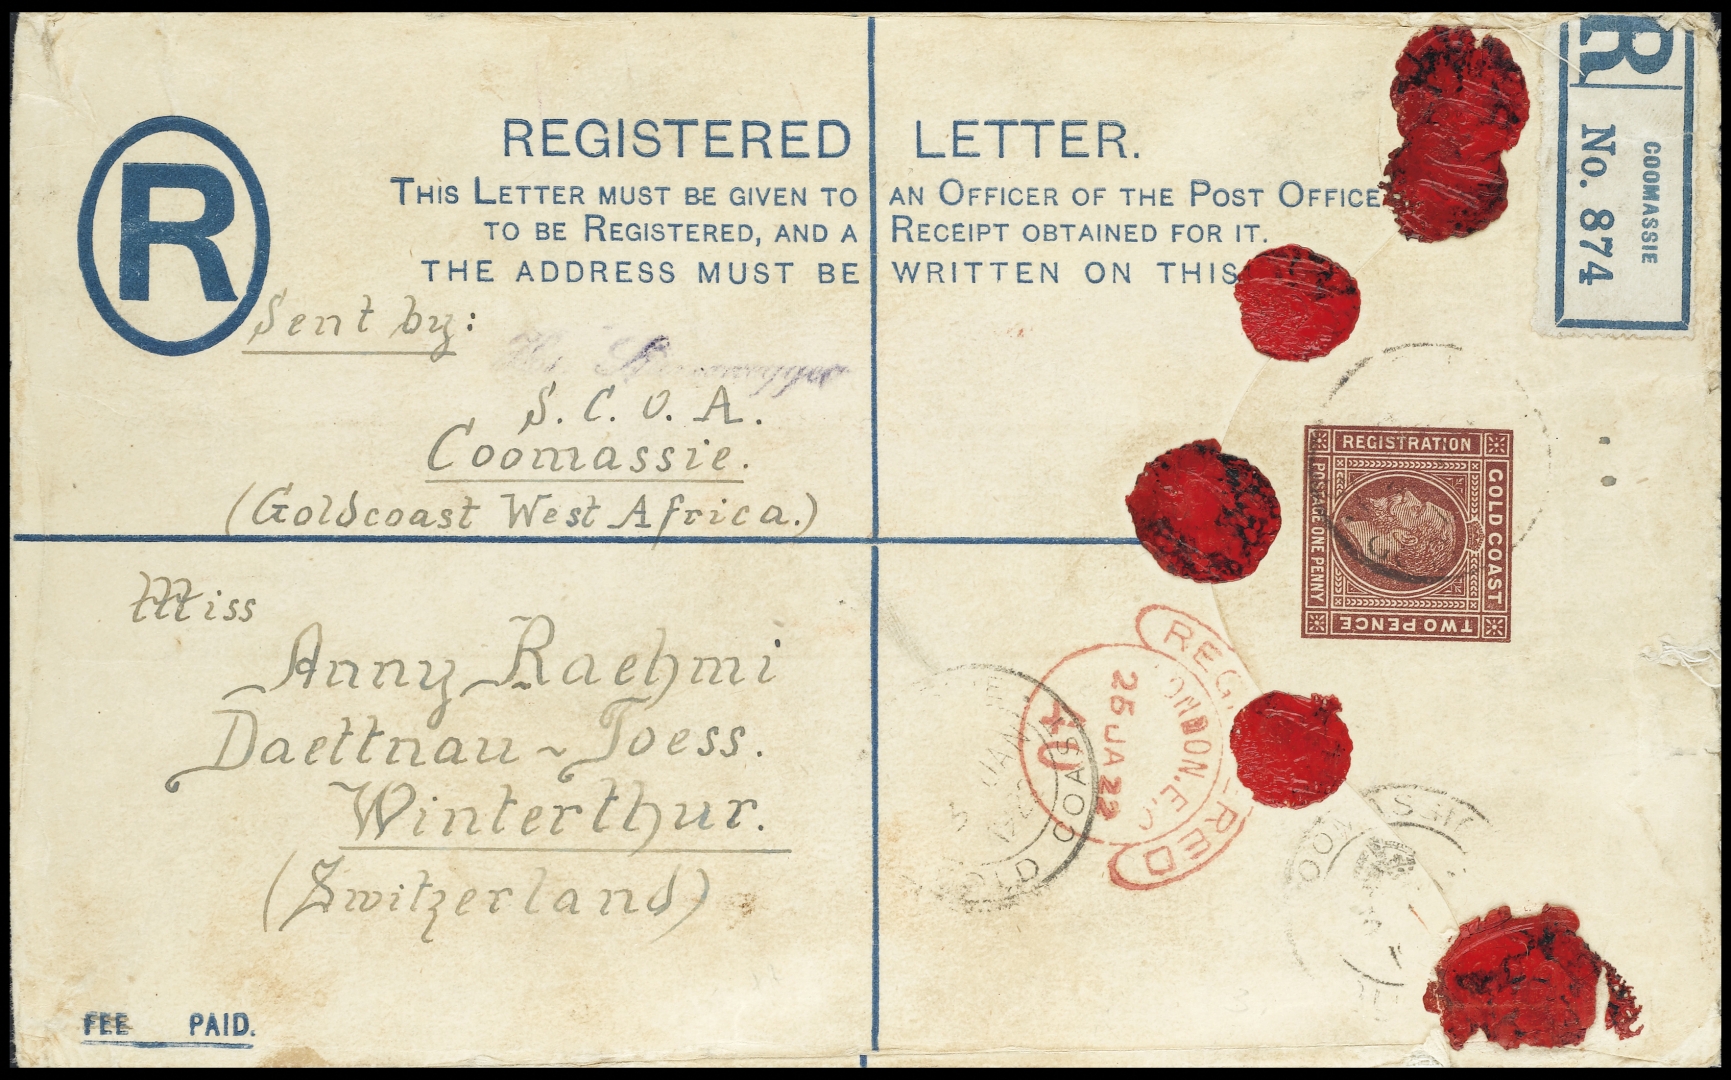 R
REGISTERED LETTER.
THIS LETTER MUST BE GIVEN TO AN OFFICER OF THE POST OFFICE
TO BE REGISTERED, AND A RECEIPT OBTAINED FOR IT.
THE ADDRESS MUST BE WRITTEN ON THIS
R
No. 874
COOMASSIE
Sent by:
S. C. O. A.
Coomassie.
(Goldcoast West Africa.)
REGISTRATION
GOLD COAST
TWO PENCE
POSTAGE ONE PENNY
Miss
Anny Raehmi
Daettnau ~ Toess.
Winterthur.
(Switzerland)
25 JA 22
GOLD COAST
FEE PAID.